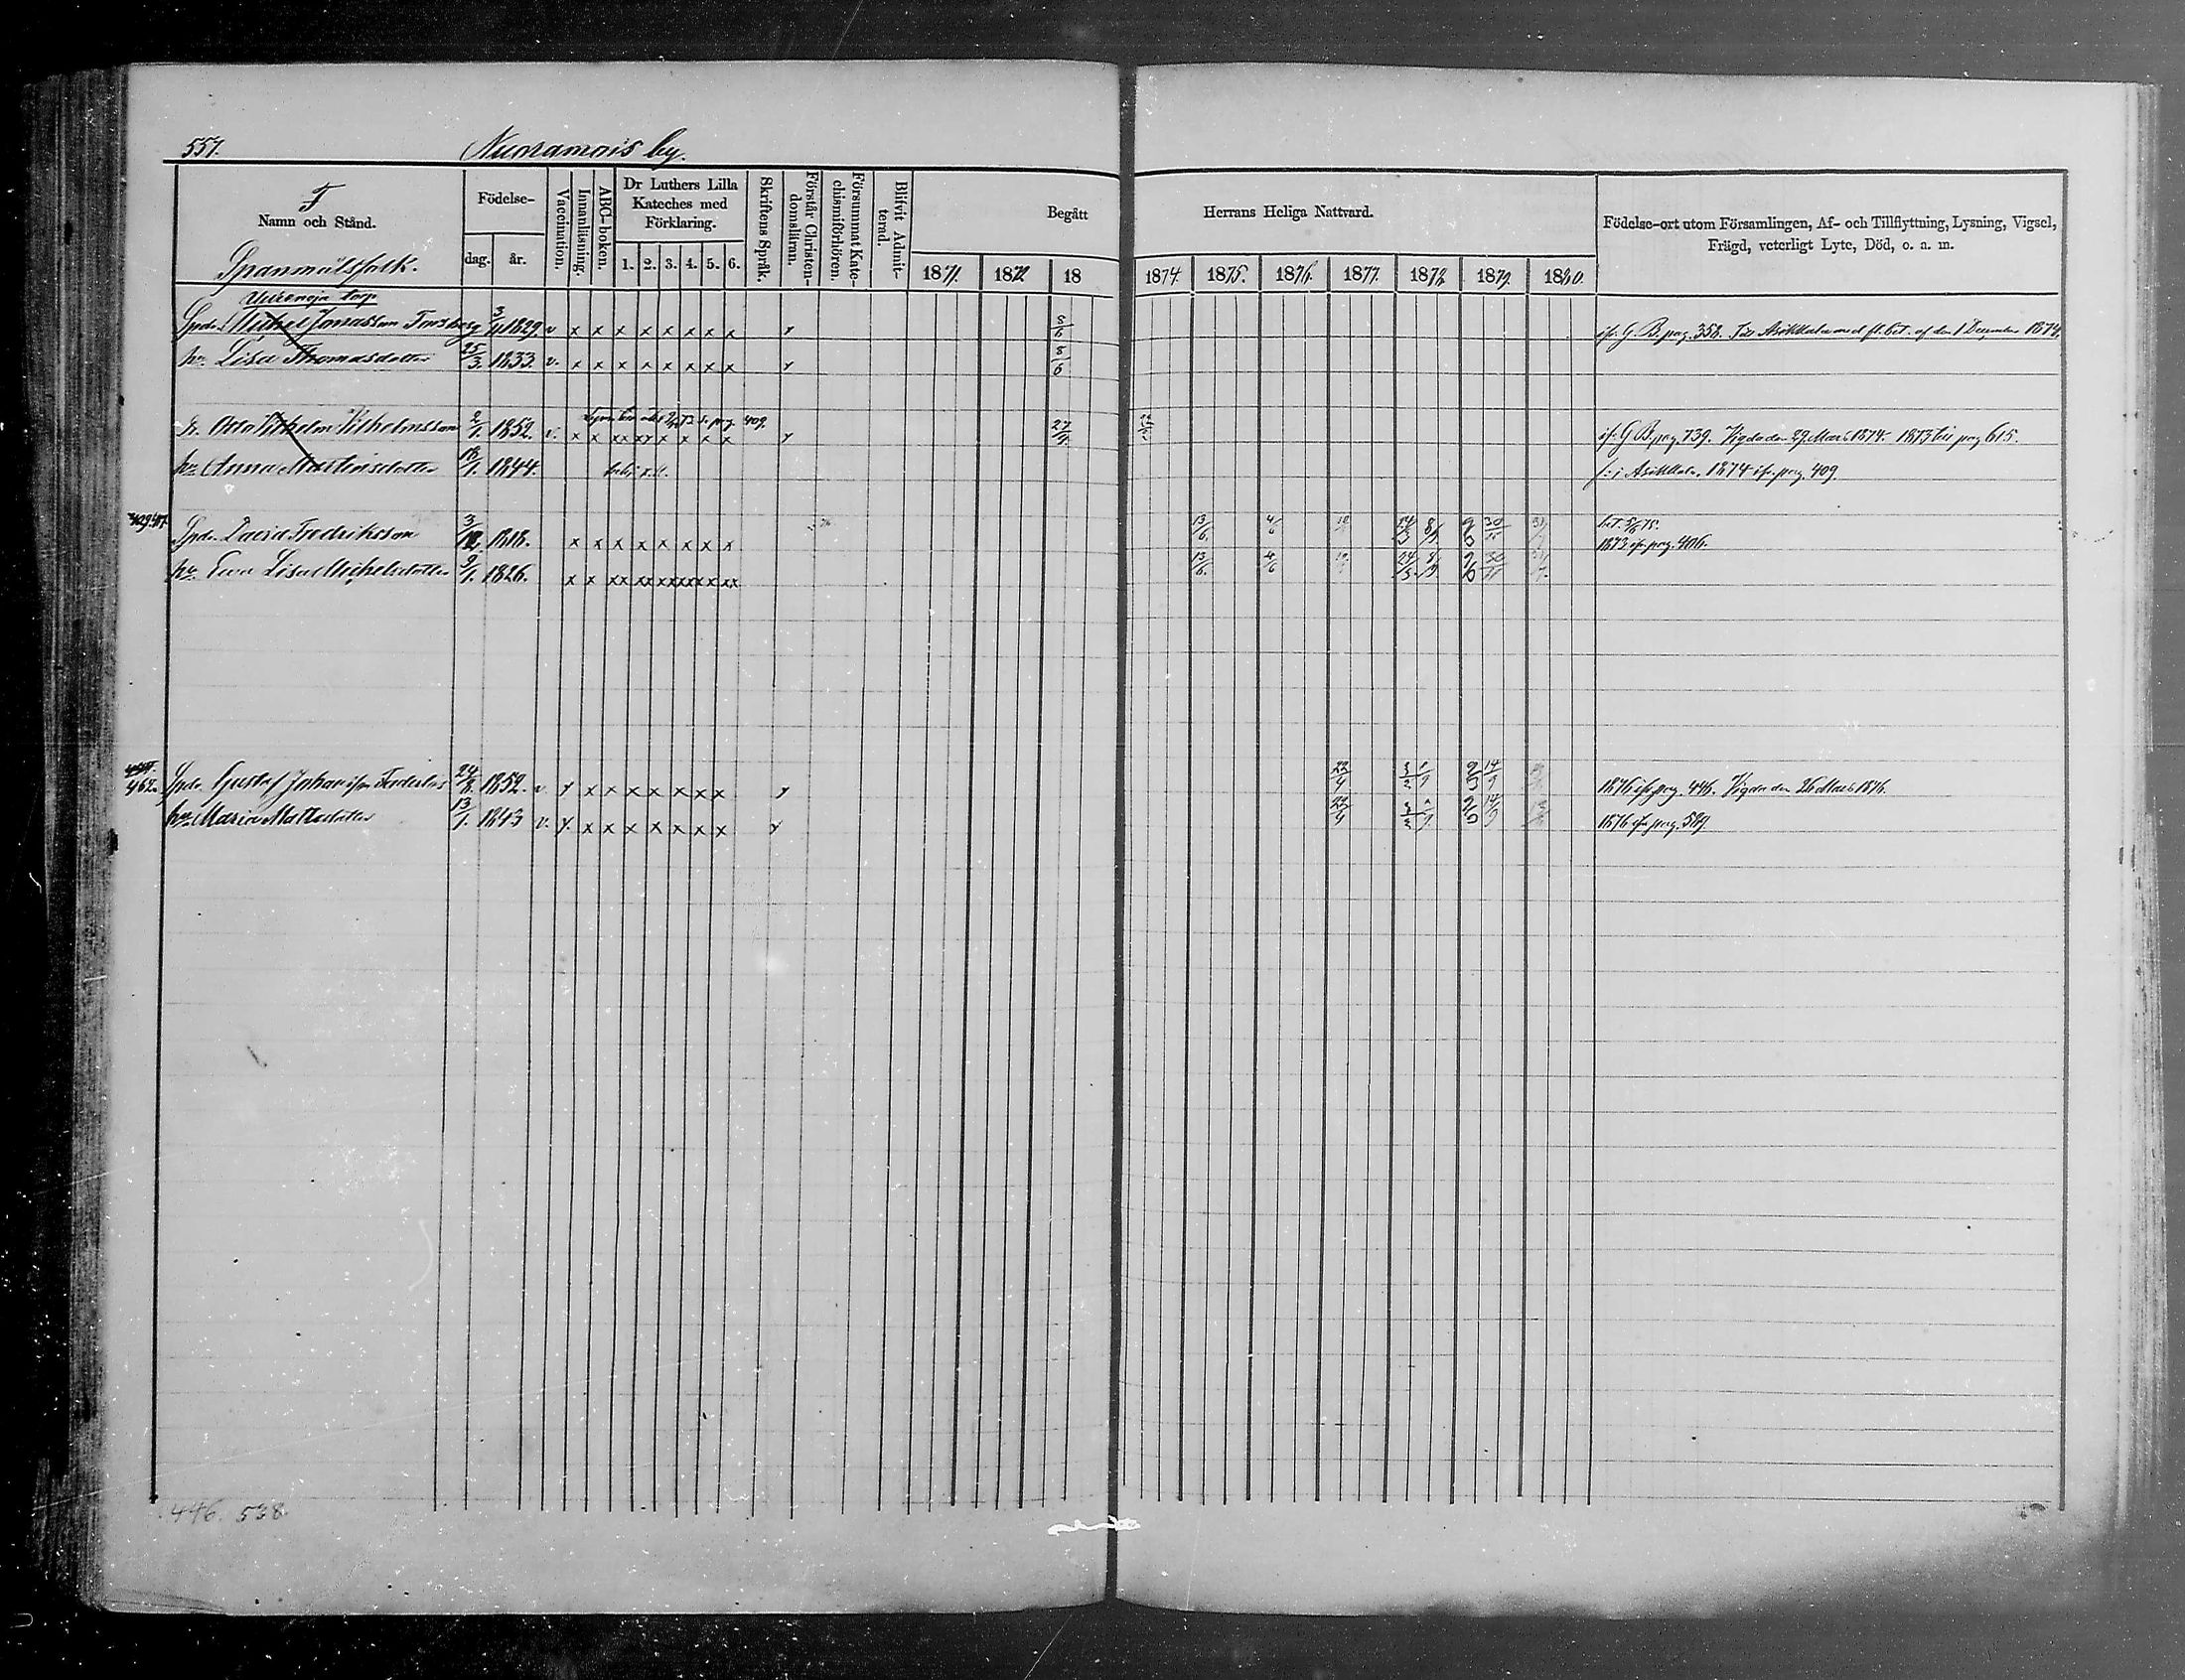 557.
Nuoramois by.
F
Namn och Stånd.
Spanmålsfolk.
Födelse-
dag.
år.
Vaccination.
Innanläsning.
ABC-boken.
Dr Luthers Lilla
Kateches med
Förklaring.
1. 2. 3. 4. 5. 6.
Skriftens Språk.
Förstår Christen-
domsläran.
Försummat Kate-
chismiförhören.
Blifvit Admit-
terad.
Begått
1871. 1872 18
Herrans Heliga Nattvard.
1874. 1875. 1876. 1877. 1878. 1879. 1880.
Födelse-ort utom Församlingen, Af- och Tillflyttning, Lysning, Vigsel,
Frägd, veterligt Lyte, Död, o. a. m.
torp
Spdr. Michel Jonasson Forsberg 3/4 1829. v x x x x x x x x 8/6 ifr. G. B. pag. 358. Till Asikkala med fl. bet. af den 1 December 1874.
hu. Lisa Thomasdotter 25/3. 1833. v. x x x x x x x x 8/6
409.
Otto Wilhelm Wilhelmsson 2/1. 1852. v. x x xx xx x x x x 27/4. ifr. G B. pag. 739. Vigda den 29 Mars 1874. 1873 till pag 615.
hu Anna Martinsdotter 18/1. 1844. f. i Asikkala. 1874 ifr. pag. 409.
Spdr. David Fredriksson 3/12. 1818. x x x x x x x x 13/6. 4/6 bet. 5/5 75.
1873 ifr. pag. 406.
hu. Eva Lisa Michelsdotter 9/1. 1826. x x xx xx xx xx xx 13/6. 4/6
462. Spdr. Gustaf Johansson 24/8. 1852. v. x x x x x x x 22/4 14/9 1876 ifr. pag. 446. Vigda den 26 Mars 1876.
hu Maria Mattsdotter 13/1. 1843 v. x x x x x x x 22/4 14/9 1876 ifr pag. 589.
446. 538.